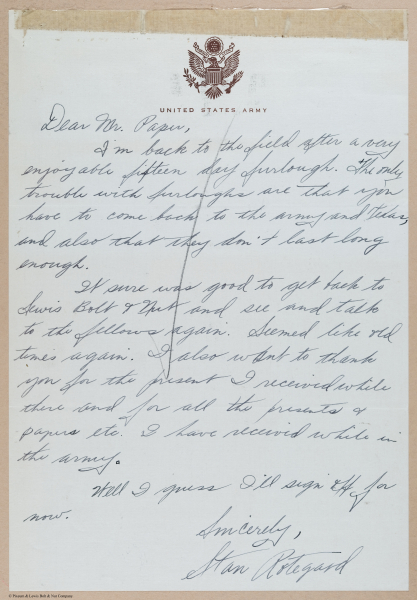 UNITED STATES ARMY
Dear Mr. Paper,
I'm back to the field after a very
enjoyable fifteen day furlough. The only
trouble with furloughs are that you
have to come back to the army and Texas,
and also that they don't last long
enough.
It sure was good to get back to
Lewis Bolt & Nut and see and talk
to the fellows again. Seemed like old
times again. I also want to thank
you for the present I received while
there and for all the presents &
papers etc. I have received while in
the army.
Well I guess I'll sign off for
now.
Sincerely,
Stan Rotegard